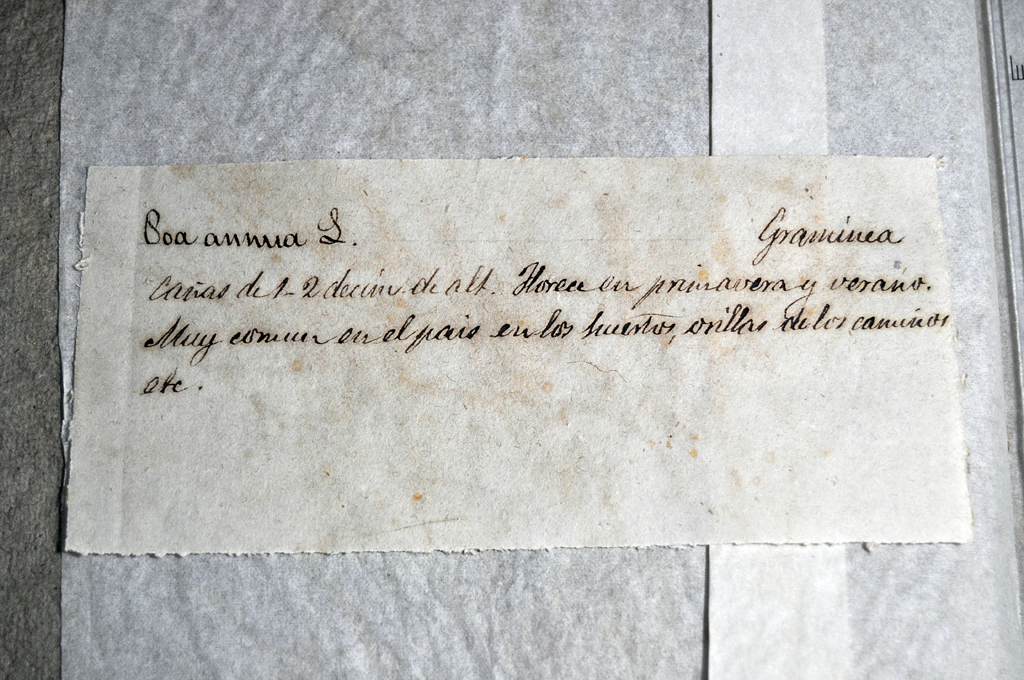 Poa annua L. Gramínea
Cañas de 1-2 decim. de alt. Florece en primavera y verano.
Muy comun en el pais en los huertos, orillas de los caminos
etc.